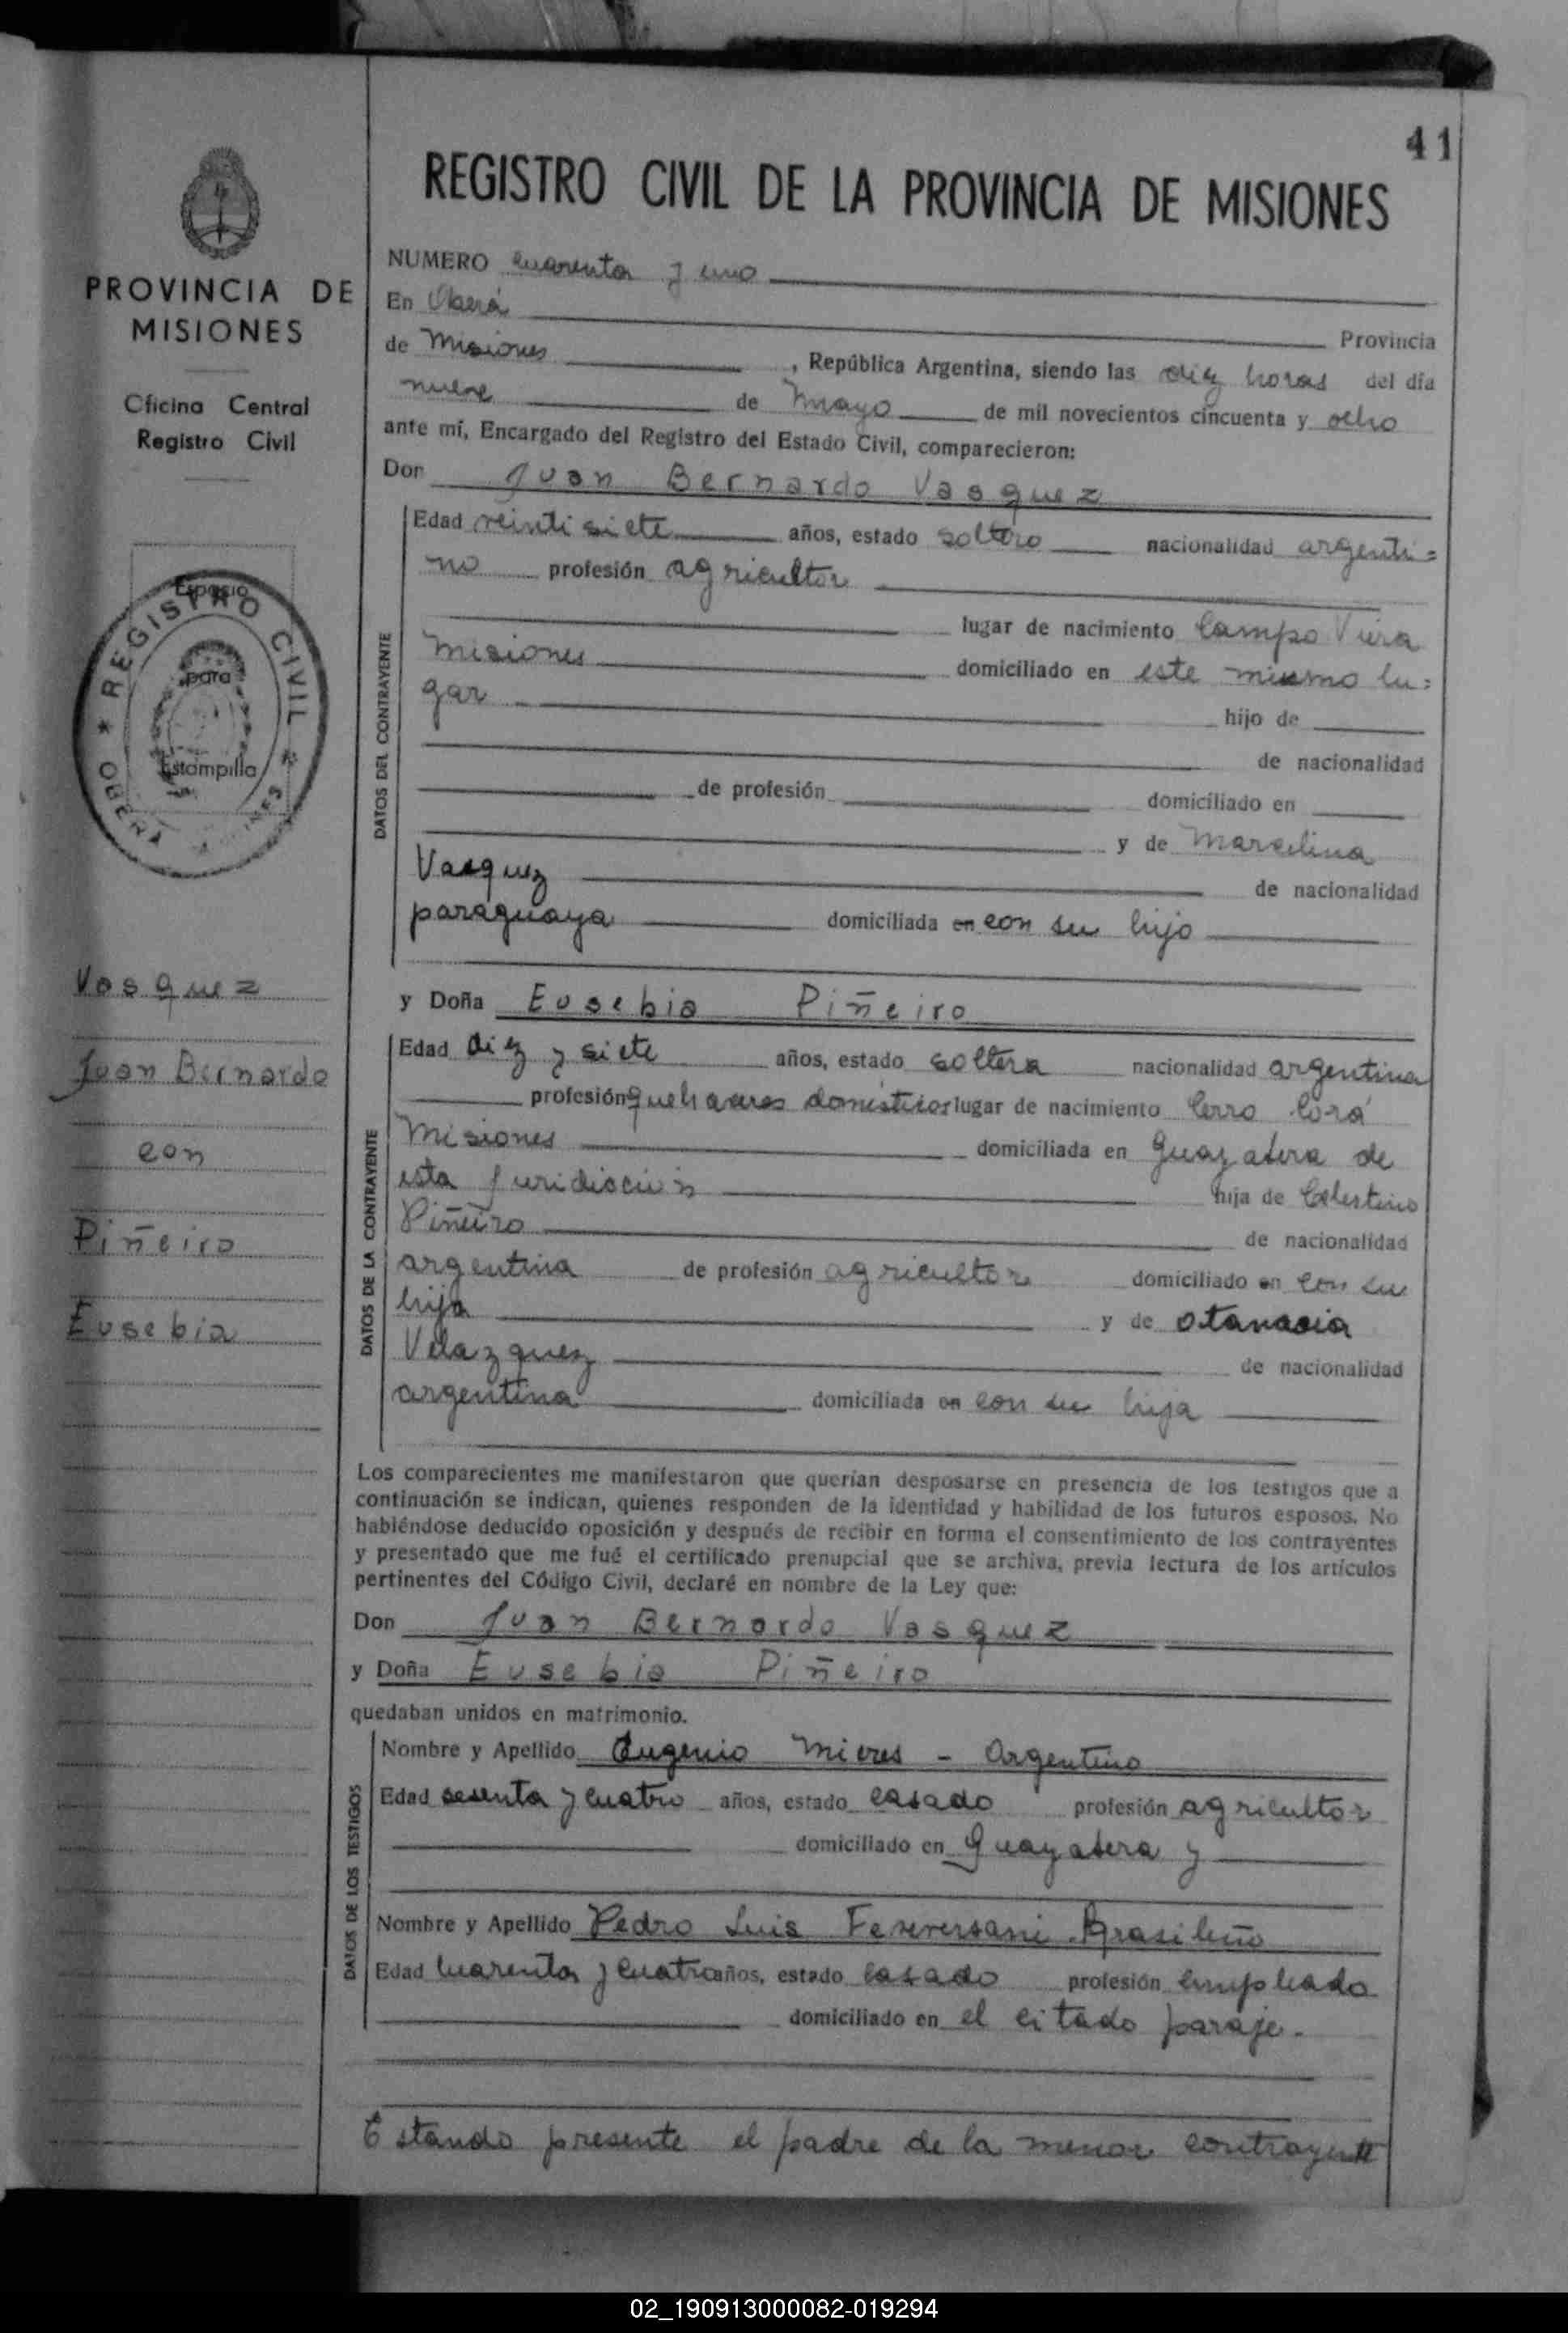 41
REGISTRO CIVIL DE LA PROVINCIA DE MISIONES
PROVINCIA DE
MISIONES
Oficina Central
Registro Civil
REGISTRO CIVIL
Espacio
para
Estampilla
OBERA
Vasquez
Juan Bernardo
con
Piñeiro
Eusebia
NUMERO cuarenta y uno
En Oberá
Provincia
de Misiones, República Argentina, siendo las diez horas del día
nueve de Mayo de mil novecientos cincuenta y ocho
ante mí, Encargado del Registro del Estado Civil, comparecieron:
Don Juan Bernardo Vasquez
DATOS DEL CONTRAYENTE
Edad veintisiete años, estado soltero nacionalidad argenti=
no profesión agricultor
lugar de nacimiento Campo Viera
Misiones domiciliado en este mismo lu=
gar hijo de
de nacionalidad
de profesión domiciliado en
y de Marcelina
Vasquez de nacionalidad
paraguaya domiciliada en con su hijo
y Doña Eusebia Piñeiro
DATOS DE LA CONTRAYENTE
Edad diez y siete años, estado soltera nacionalidad argentina
profesión quehaceres domésticos lugar de nacimiento Cerro Corá
Misiones domiciliada en Guayabera de
esta juridicción hija de Celestino
Piñeiro de nacionalidad
argentina de profesión agricultor domiciliado en con su
hija y de Otanacia
Velazquez de nacionalidad
argentina domiciliada en con su hija
Los comparecientes me manifestaron que querían desposarse en presencia de los testigos que a
continuación se indican, quienes responden de la identidad y habilidad de los futuros esposos. No
habiéndose deducido oposición y después de recibir en forma el consentimiento de los contrayentes
y presentado que me fué el certificado prenupcial que se archiva, previa lectura de los artículos
pertinentes del Código Civil, declaré en nombre de la Ley que:
Don Juan Bernardo Vasquez
y Doña Eusebia Piñeiro
quedaban unidos en matrimonio.
DATOS DE LOS TESTIGOS
Nombre y Apellido Eugenio Mieres - Argentino
Edad sesenta y cuatro años, estado casado profesión agricultor
domiciliado en Guayabera y
Nombre y Apellido Pedro Luis Brasileño
Edad cuarenta y cuatro años, estado casado profesión empleado
domiciliado en el citado paraje.
Estando presente el padre de la menor contrayente
02_190913000082-019294